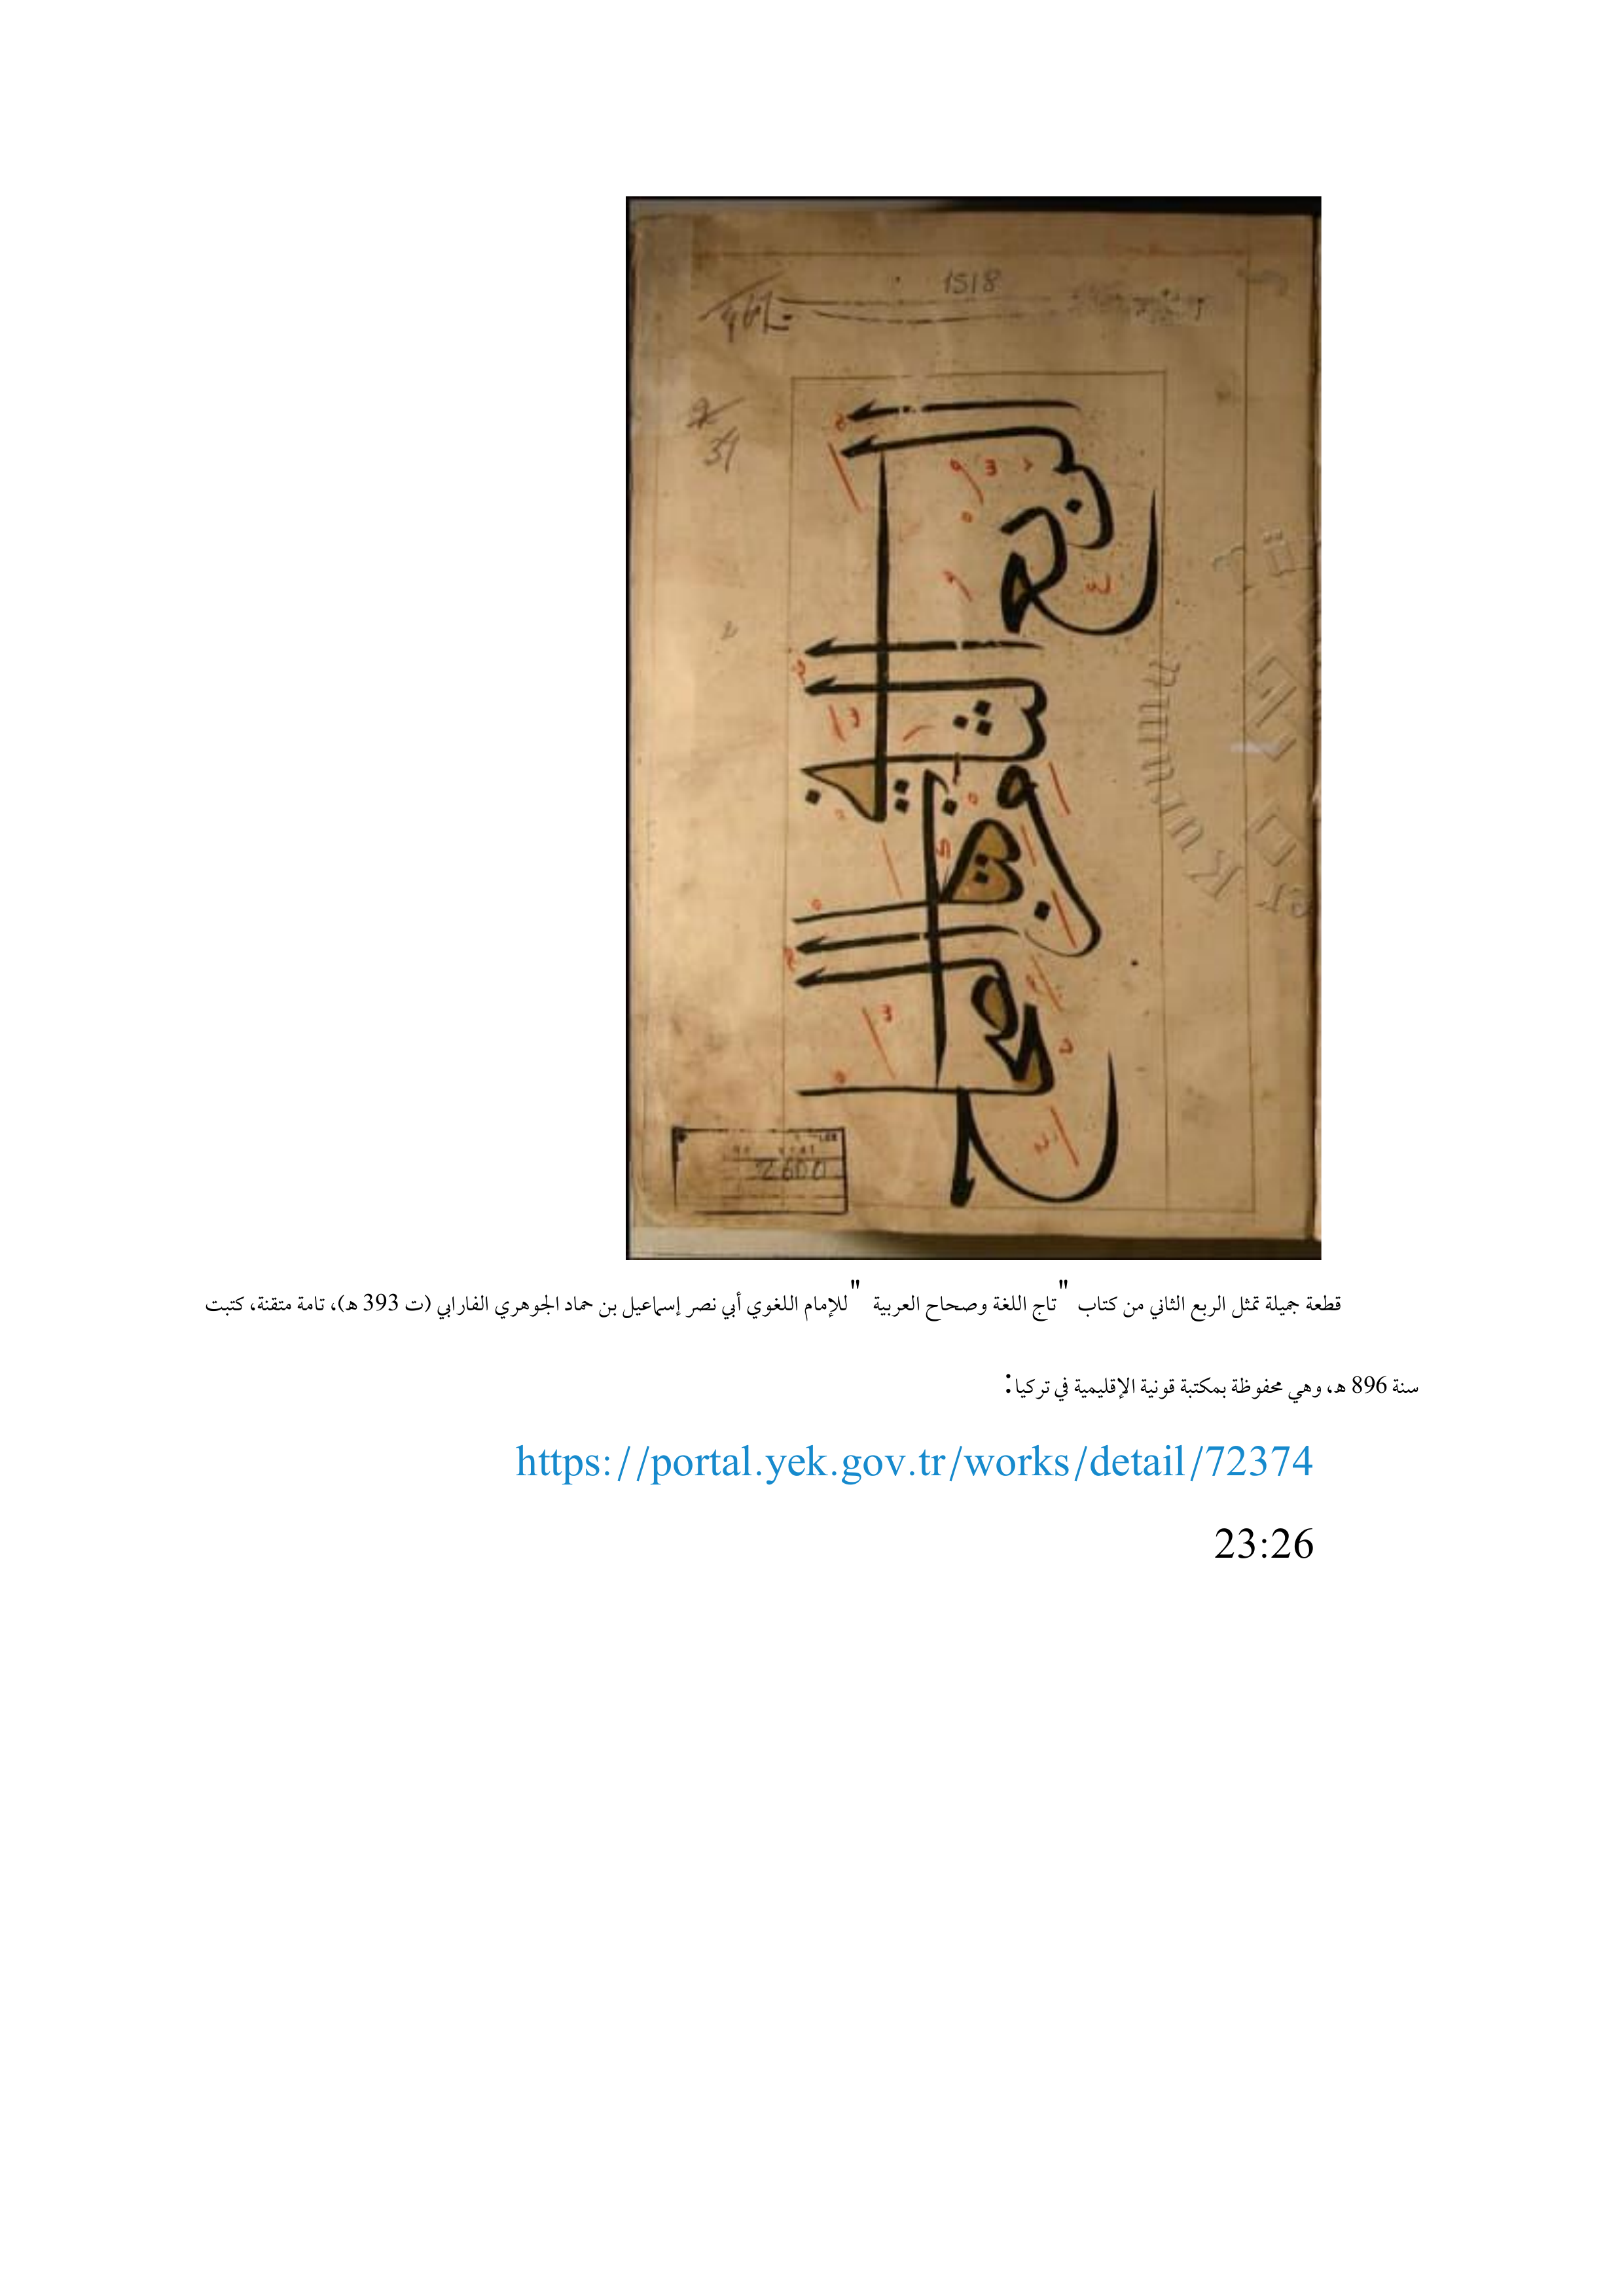 1518
34
2600
قطعة جميلة تمثل الربع الثاني من كتاب "تاج اللغة وصحاح العربية" للإمام اللغوي أبي نصر إسماعيل بن حماد الجوهري الفارابي (ت 393 هـ)، تامة متقنة، كتبت
سنة 896 هـ، وهي محفوظة بمكتبة قونية الإقليمية في تركيا:
https://portal.yek.gov.tr/works/detail/72374
23:26